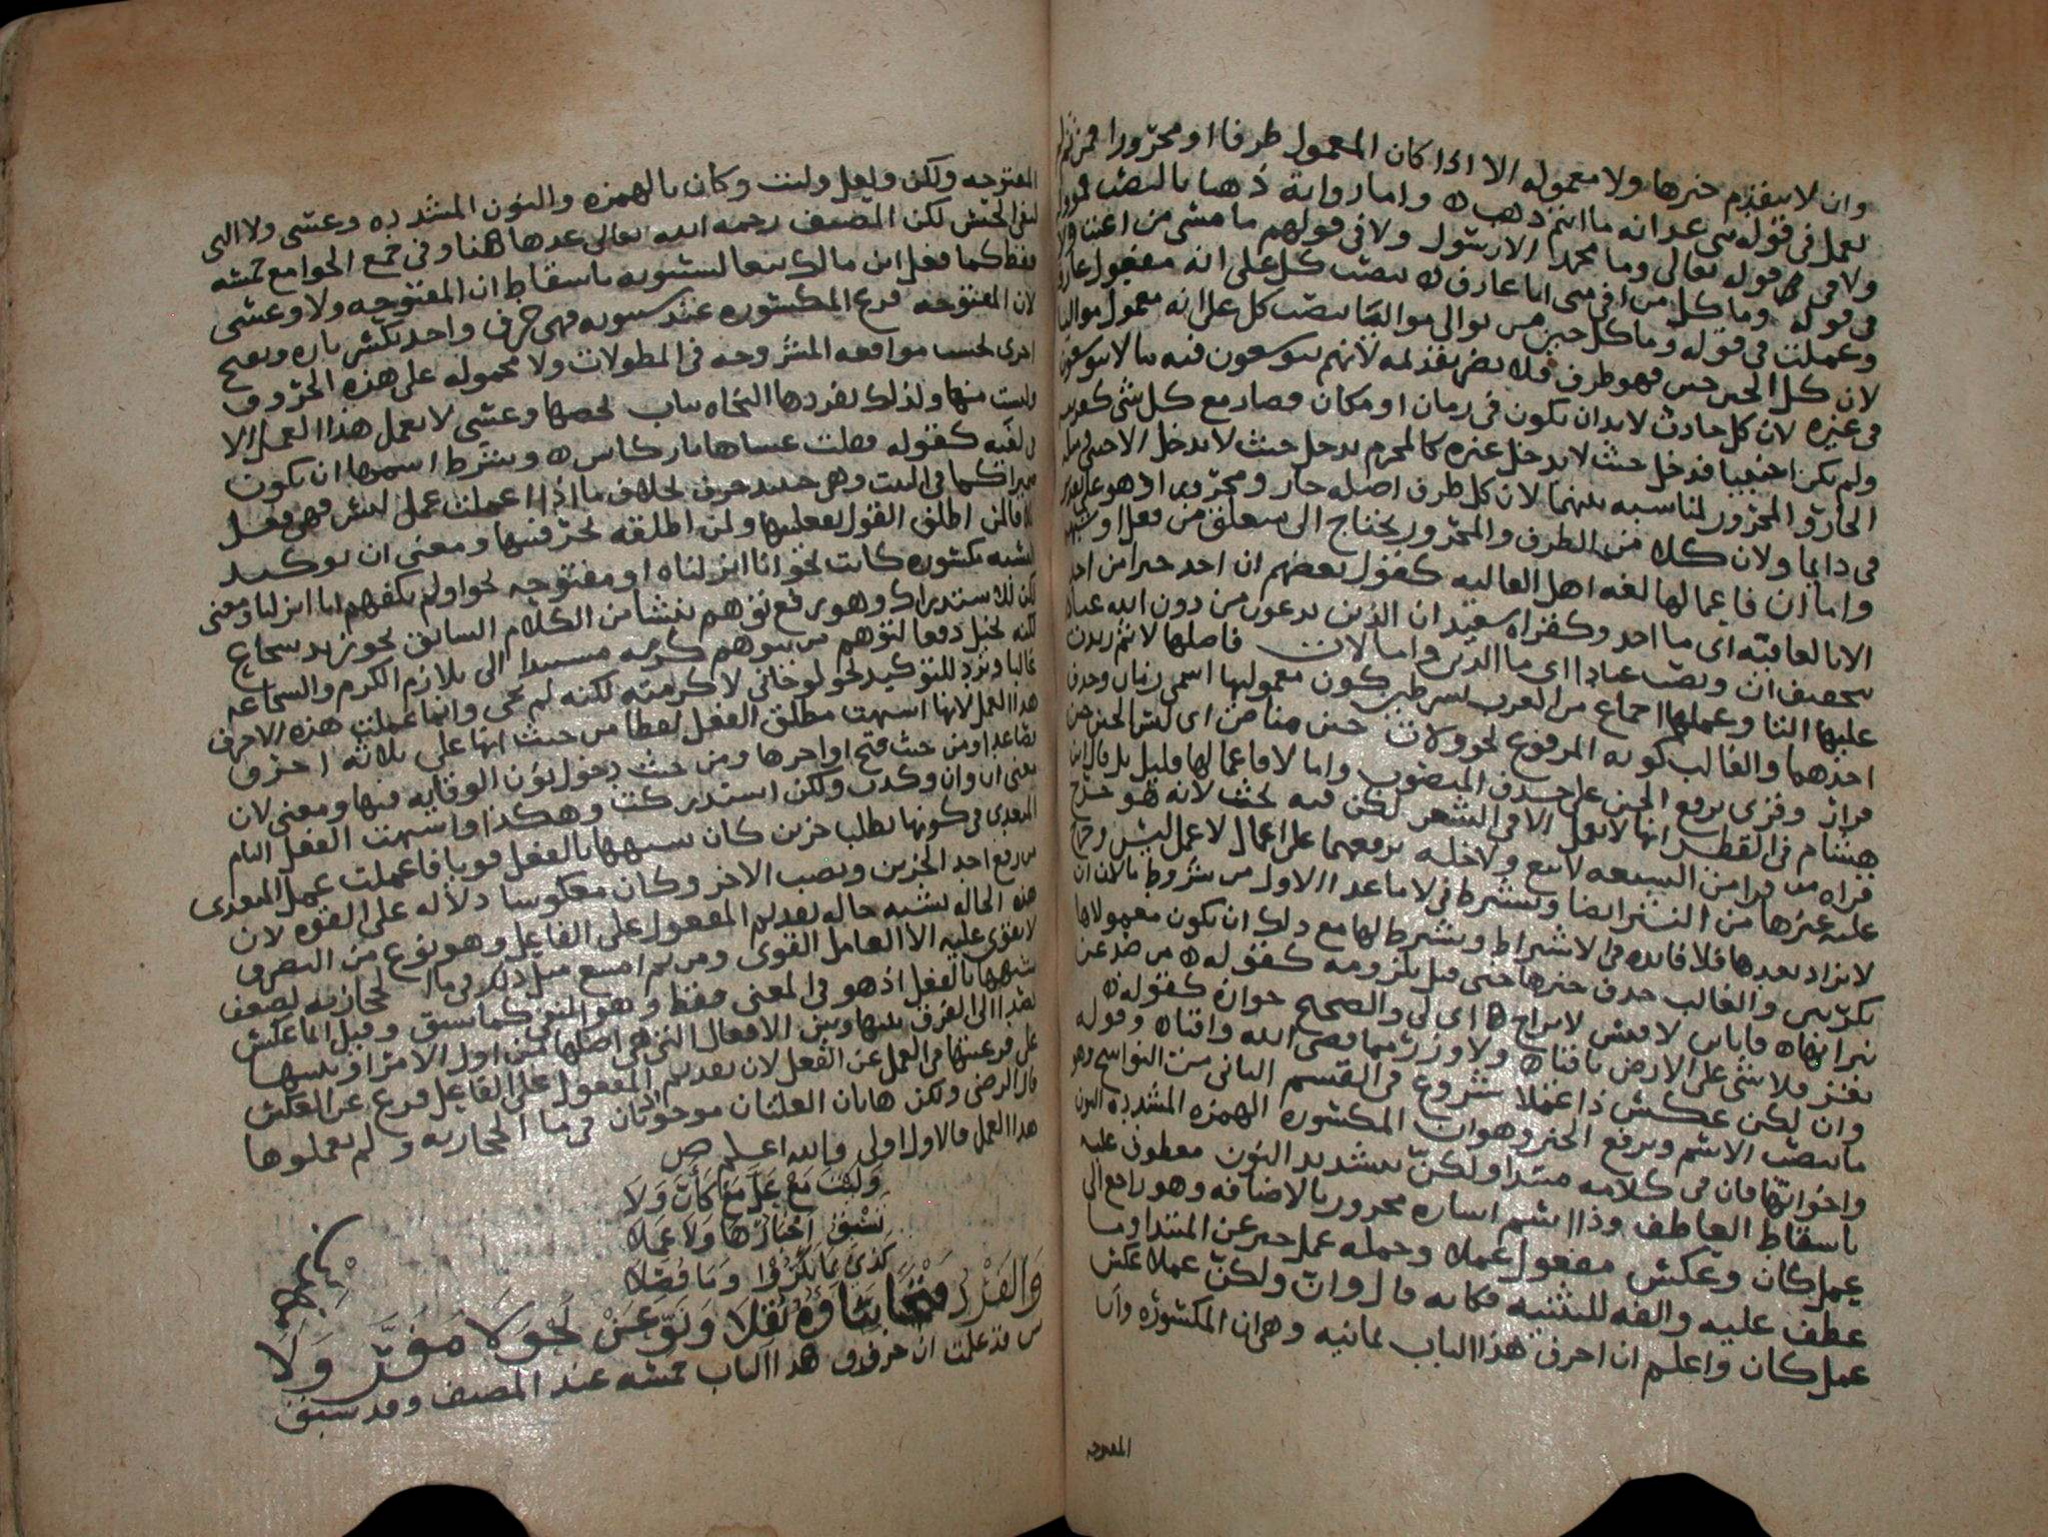 وان لا يتقدم خبرها ولا معموله الا اذا كان المعمول ظرفا او مجرورا فمن ثم لم
تعمل في قوله بني غدانه ما ان انتم ذهب ه واما رواية ذهبا بالنصب
ولا في قوله تعالى وما محمد الا رسول ولا في قولهم ما مسيء من اعتب ولا
في قوله وما كل من وافى منى انا عارف ه بنصب كل على انه مفعول عارف
وعملت في قوله وما كل حين من توالي مواليا بنصب كل على انه معمول مواليا
لان كل الحين حين فهو ظرف فلا يضر تقديمه لانهم يتوسعون فيه ما لا يتوسعون
في غيره لان كل حادث لا بد ان يكون في زمان او مكان فصار مع كل شي كقريبه
ولم يكن اجنبيا فدخل حيث لا يدخل غيره كالمحرم يدخل حيث لا يدخل الاجنبي
الجار والمجرور لمناسبه بينهما لان كل ظرف اصله جار ومجرور اذ هو على تقدير
في دايما ولان كلا من الظرف والمجرور يحتاج الى متعلق من فعل او شبهه
واما ان فاعمالها لغه اهل العاليه كقول بعضهم ان احد خيرا من احد
الا بالعافية اي ما احد وكقراه سعيد ان الذين تدعون من دون الله عبادا
بتخفيف ان ونصب عبادا اي ما الذين واما لات فاصلها لا ثم زيدت
عليها التا وعملها اجماع من العرب بشرطين كون معموليها اسمي زمان وحذف
احدهما والغالب كونه المرفوع نحو ولات حين مناص اي ليس الحين حين
فرار وقرئ برفع الحين على حذف المنصوب واما لا فاعمالها قليل بل قال ابن
هشام في القطر انها لا تعمل الا في الشعر لكن فيه بحث لانه هو خرج
قراه من قرا من السبعه لا بيع ولا خله برفعهما على اعمال لا عمل ليس وخرج
عليه غيرها من النثر ايضا ويشترط في لا ما عدا الاول من شروط ما لان ان
لا تزاد بعدها فلا فايده في الاشتراط ويشترط لها مع ذلك ان يكون معمولاها
نكرتين والغالب حذف خبرها حتى قيل بلزومه كقوله ه من صد عن
نيرانها ه فانا ابن قيس لا براح ه اي لي والصحيح جوازه كقوله ه
تعز فلا شئ على الارض باقيا ه ولا وزر مما قضى الله واقيا ه وقوله
وان لكن عكس ذا عملا شروع في القسم الثاني من النواسخ وهو
ما ينصب الاسم ويرفع الخبر وهو ان المكسوره الهمزه المشدده النون
واخواتها فان في كلامه مبتدا ولكن بتشديد النون معطوف عليه
باسقاط العاطف وذا اسم اشاره مجرور بالاضافه وهو راجع الى
عمل كان وعكس مفعول عملا وجمله عمل خبر عن المبتدا وما
عطف عليه والفه للتثنيه فكانه قال وان ولكن عملا عكس
عمل كان واعلم ان احرف هذا الباب ثمانيه وهي ان المكسوره وان
المفتوحه
المفتوحه ولكن ولعل وليت وكان بالهمزه والنون المشدده وعسى ولا التي
لنفي الجنس لكن المصنف رحمه الله تعالى عدها هنا وفي جمع الجوامع خمسه
فقط كما فعل ابن مالك تبعا لسيبويه باسقاط ان المفتوحه ولا وعسى
لان المفتوحه فرع المكسوره عند سيبويه فهي حرف واحد تكسر تاره وتفتح
اخرى بحسب مواقعه المشروحه في المطولات ولا محموله على هذه الحروف
وليست منها ولذلك يفردها النحاه بباب يخصها وعسى لا تعمل هذا العمل الا
في لغيه كقوله فقلت عساها نار كاس ه ويشترط اسمها ان يكون
ضميرا كما في البيت وهي حينيد حرف بخلاف ما اذا عملت عمل ليس فهي فعل
اطلق القول بفعليتها ولمن اطلقه بحرفيتها ومعنى ان توكيد
النسبه مكسوره كانت نحو انا انزلناه او مفتوحه نحو اولم يكفهم انا انزلنا ومعنى
لكن الاستدراك وهو رفع توهم ينشا من الكلام السابق نحو زيد شجاع
لكنه بخيل دفعا لتوهم من يتوهم كرمه مستندا الى تلازم الكرم والشجاعه
غالبا وترد للتوكيد نحو لو جاني لاكرمته لكنه لم يجي وانما عملت هذه الاحرف
هذا العمل لانها اشبهت مطلق الفعل لفظا من حيث انها على ثلاثه احرف
فصاعدا ومن حيث فتح اواخرها ومن حيث دخول نون الوقايه فيها ومعنى لان
معنى ان وان وكدت ولكن استدركت وهكذا واشبهت الفعل التام
المتعدي في كونها تطلب جزين كان شبهها بالفعل قويا فاعملت عمل المتعدي
من رفع احد الجزين ونصب الاخر وكان معكوسا دلاله على القوه لان
هذه الحاله تشبه حاله تقديم المفعول على الفاعل وهو نوع من التصرف
لا يقوى عليه الا العامل القوي ومن ثم امتنع مثل ذلك في ما الحجازيه لضعف
شبهها بالفعل اذ هو في المعنى فقط وهو النفي كما سبق وقيل انما عكس
قصدا الى الفرق بينها وبين الافعال التي هي اصلها من اول الامر او تنبيها
على فرعيتها في العمل عن الفعل لان تقديم المفعول على الفاعل فرع عن العكس
قال الرضي ولكن هاتان العلتان موجودتان في ما الحجازيه ولم يعملوها
هذا العمل فالاول اولى والله اعلم ص
وَلَيْتَ مَعْ عَلَّ مَعَ كَأَنَّ وَلَا
تَسْبِقُ اَخْبَارُهَا وَلَا عَمَلا
كَذِي مَا يَكُنْ وَمَا فُصِّلَا
س قد علمت ان حروف هذا الباب خمسه عند المصنف وقد سبق